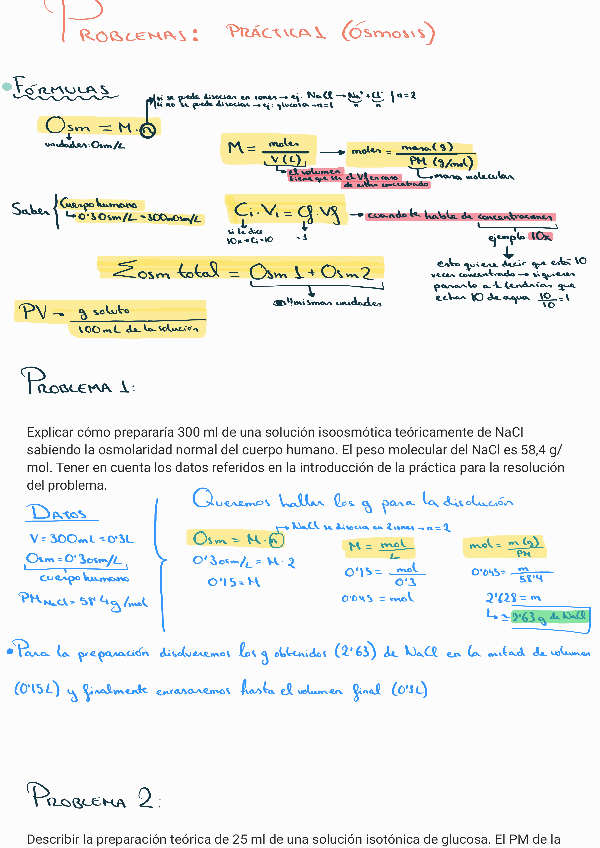 PROBLEMAS: PRÁCTICA 1 (ÓSMOSIS)
FÓRMULAS
si se puede disociar en iones → ej. NaCl → Na⁺ + Cl⁻ / n=2
si no se puede disociar → ej: glucosa → n=1
Osm = M · n
unidades: Osm/L
M = moles / V (L) → moles = masa (g) / PM (g/mol)
el volumen
tiene que ser el Vf en caso
de estar concentrado
masa molecular
Saber
Cuerpo humano
↳ 0'30sm/L = 300mOsm/L
Ci · Vi = Cf · Vf → cuando te hable de concentraciones
si te dice
10x → Ci = 10
= 1
ejemplo 10x
esto quiere decir que está 10
veces concentrado → si quieres
pasarlo a 1 tendrías que
echar 10 de agua 10/10 = 1
Σosm total = Osm 1 + Osm 2
mismas unidades
PV → g soluto / 100mL de la solución
PROBLEMA 1:
Explicar cómo prepararía 300 ml de una solución isoosmótica teóricamente de NaCl
sabiendo la osmolaridad normal del cuerpo humano. El peso molecular del NaCl es 58,4 g/
mol. Tener en cuenta los datos referidos en la introducción de la práctica para la resolución
del problema.
Queremos hallar los g para la disolución
DATOS
V = 300mL = 0'3L
Osm = 0'3osm/L
cuerpo humano
PM NaCl = 58'4g/mol
NaCl se disocia en 2 iones → n=2
Osm = M · n
0'3osm/L = M · 2
0'15 = M
M = mol / L
0'15 = mol / 0'3
0'045 = mol
mol = m (g) / PM
0'045 = m / 58'4
2'628 = m
↳ ≃ 2'63 g de NaCl
• Para la preparación disolveremos los g obtenidos (2'63) de NaCl en la mitad de volumen
(0'15L) y finalmente enrasaremos hasta el volumen final (0'3L)
PROBLEMA 2:
Describir la preparación teórica de 25 ml de una solución isotónica de glucosa. El PM de la